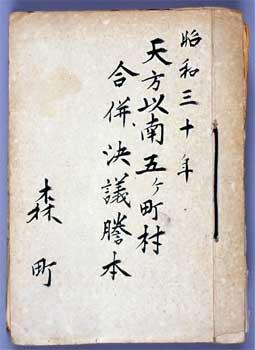 昭和三十年
天方以南五ヶ町村
合併決議謄本
森町